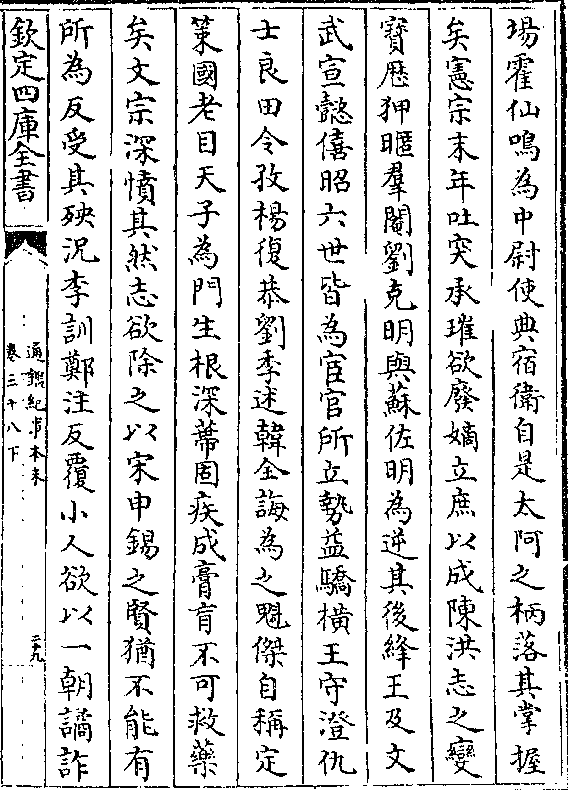 場霍仙鳴為中尉使典宿衛自是太阿之柄落其掌握
矣憲宗末年吐突承璀欲廢嫡立庶以成陳洪志之變
寶歴狎暱羣閹劉克明與蘇佐明為逆其後絳王及文
武宣懿僖昭六世皆為宦官所立勢益驕横王守澄仇
士良田令孜楊復恭劉季述韓全誨為之魁傑自稱定
策國老目天子為門生根深蔕固疾成膏肓不可救藥
矣文宗深憤其然志欲除之以宋申錫之賢猶不能有
所為反受其殃況李訓鄭注反覆小人欲以一朝譎詐
欽定四庫全書
通鑑紀事本末
卷三十八下
二十九